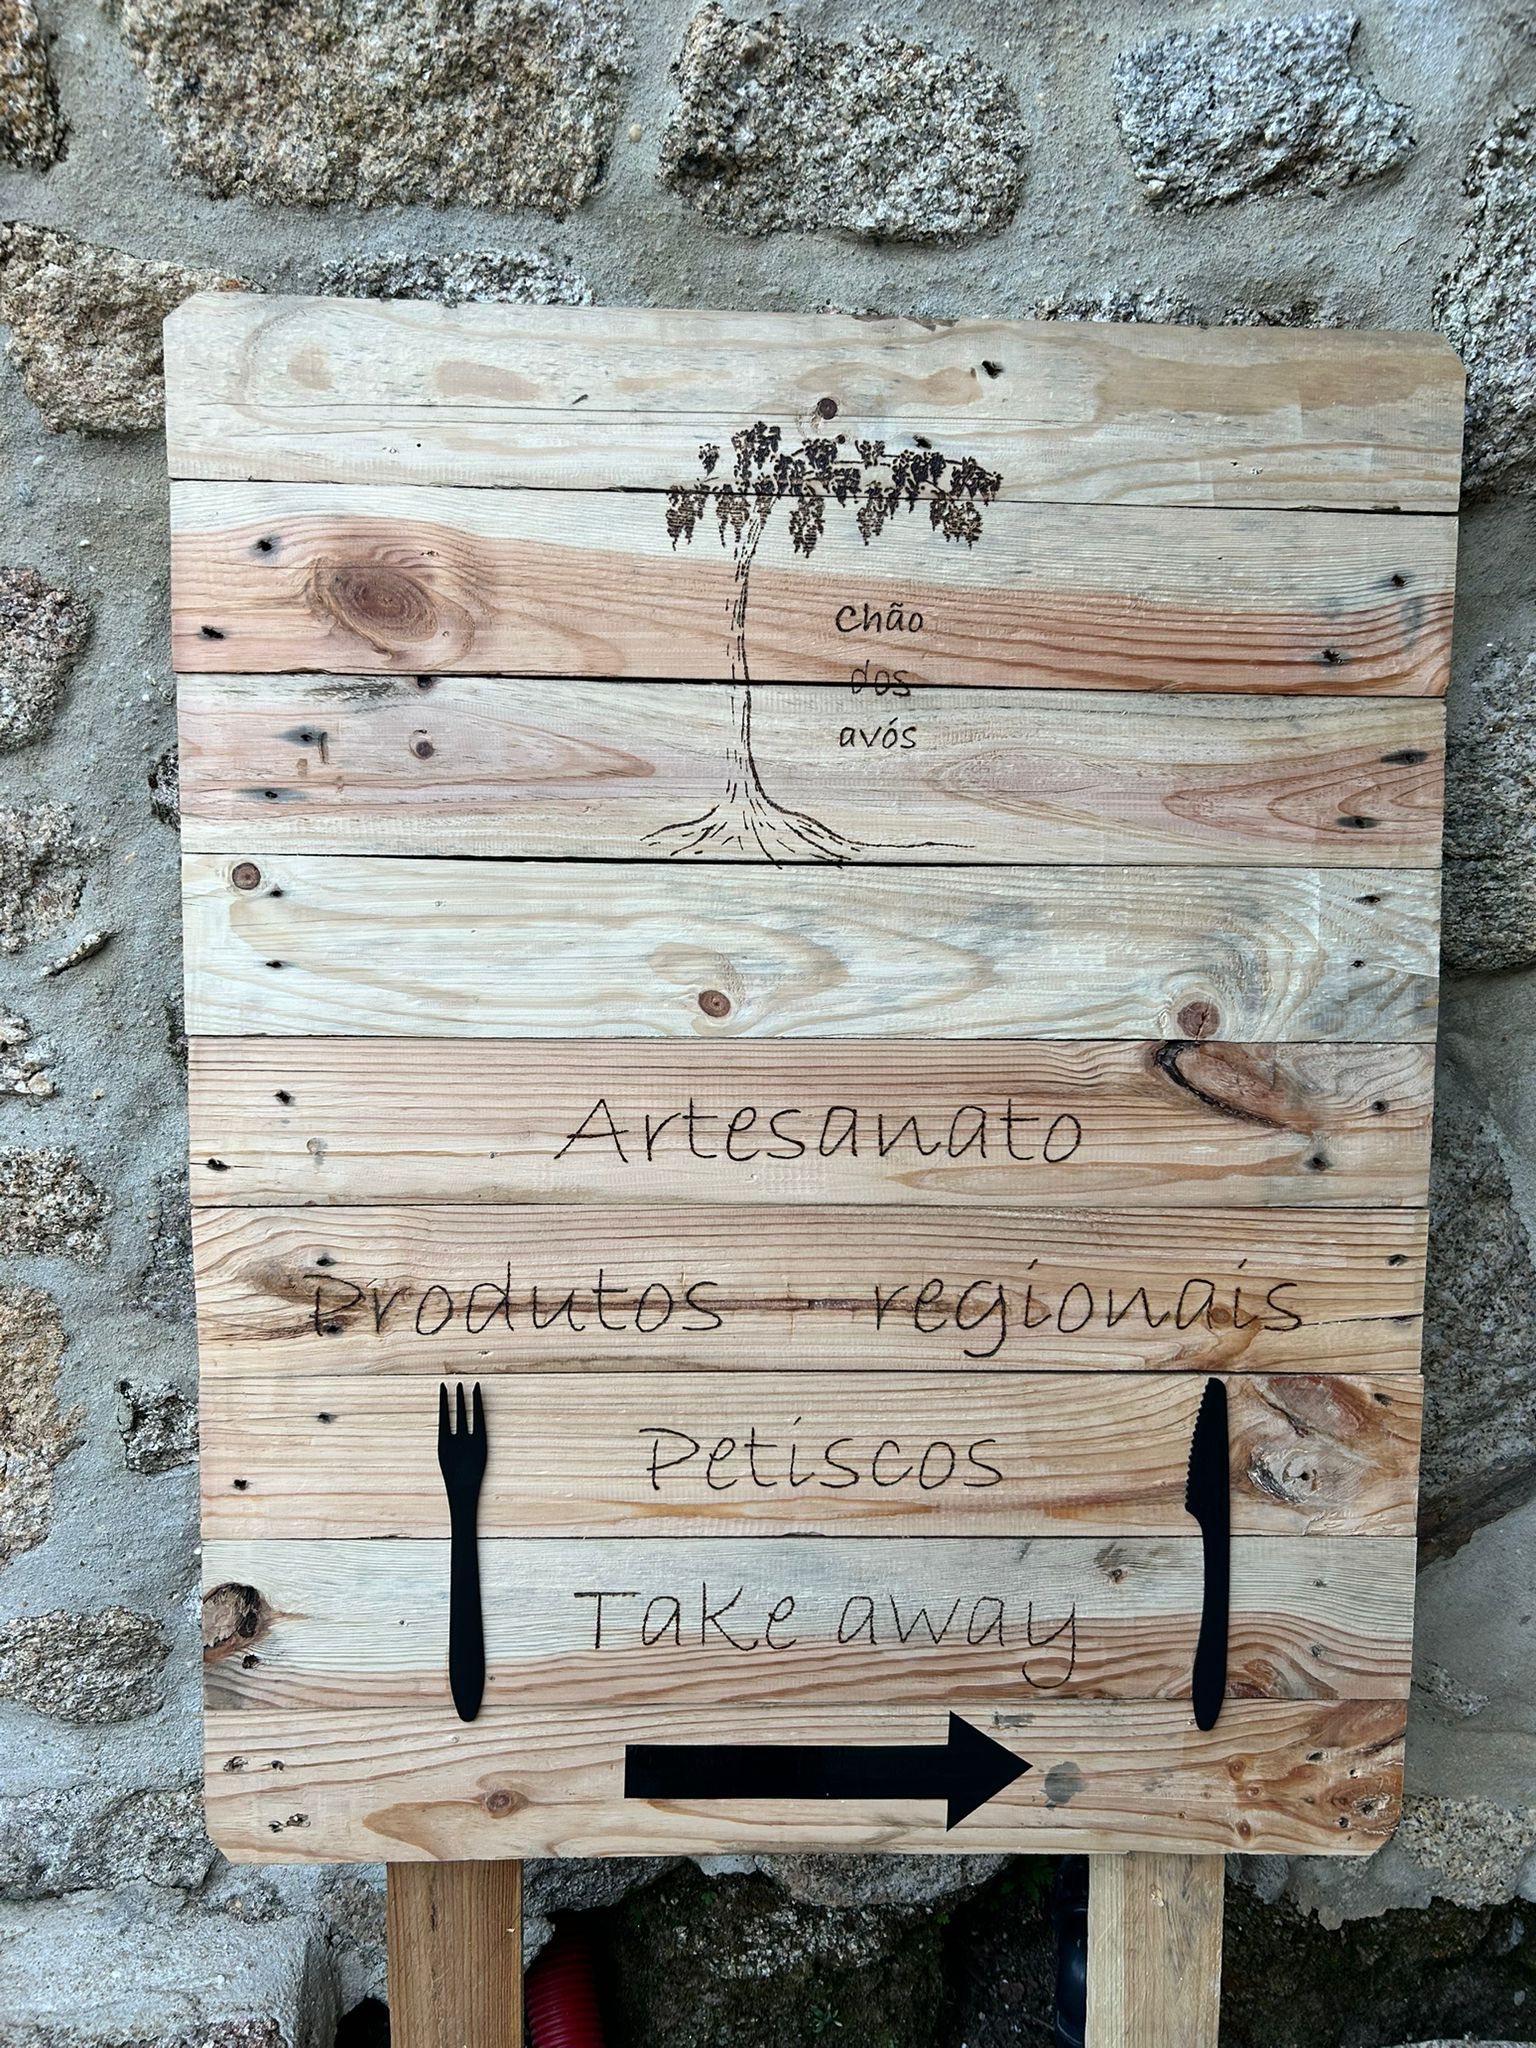 Chão
dos
avós
Artesanato
Produtos regionais
Petiscos
Take away